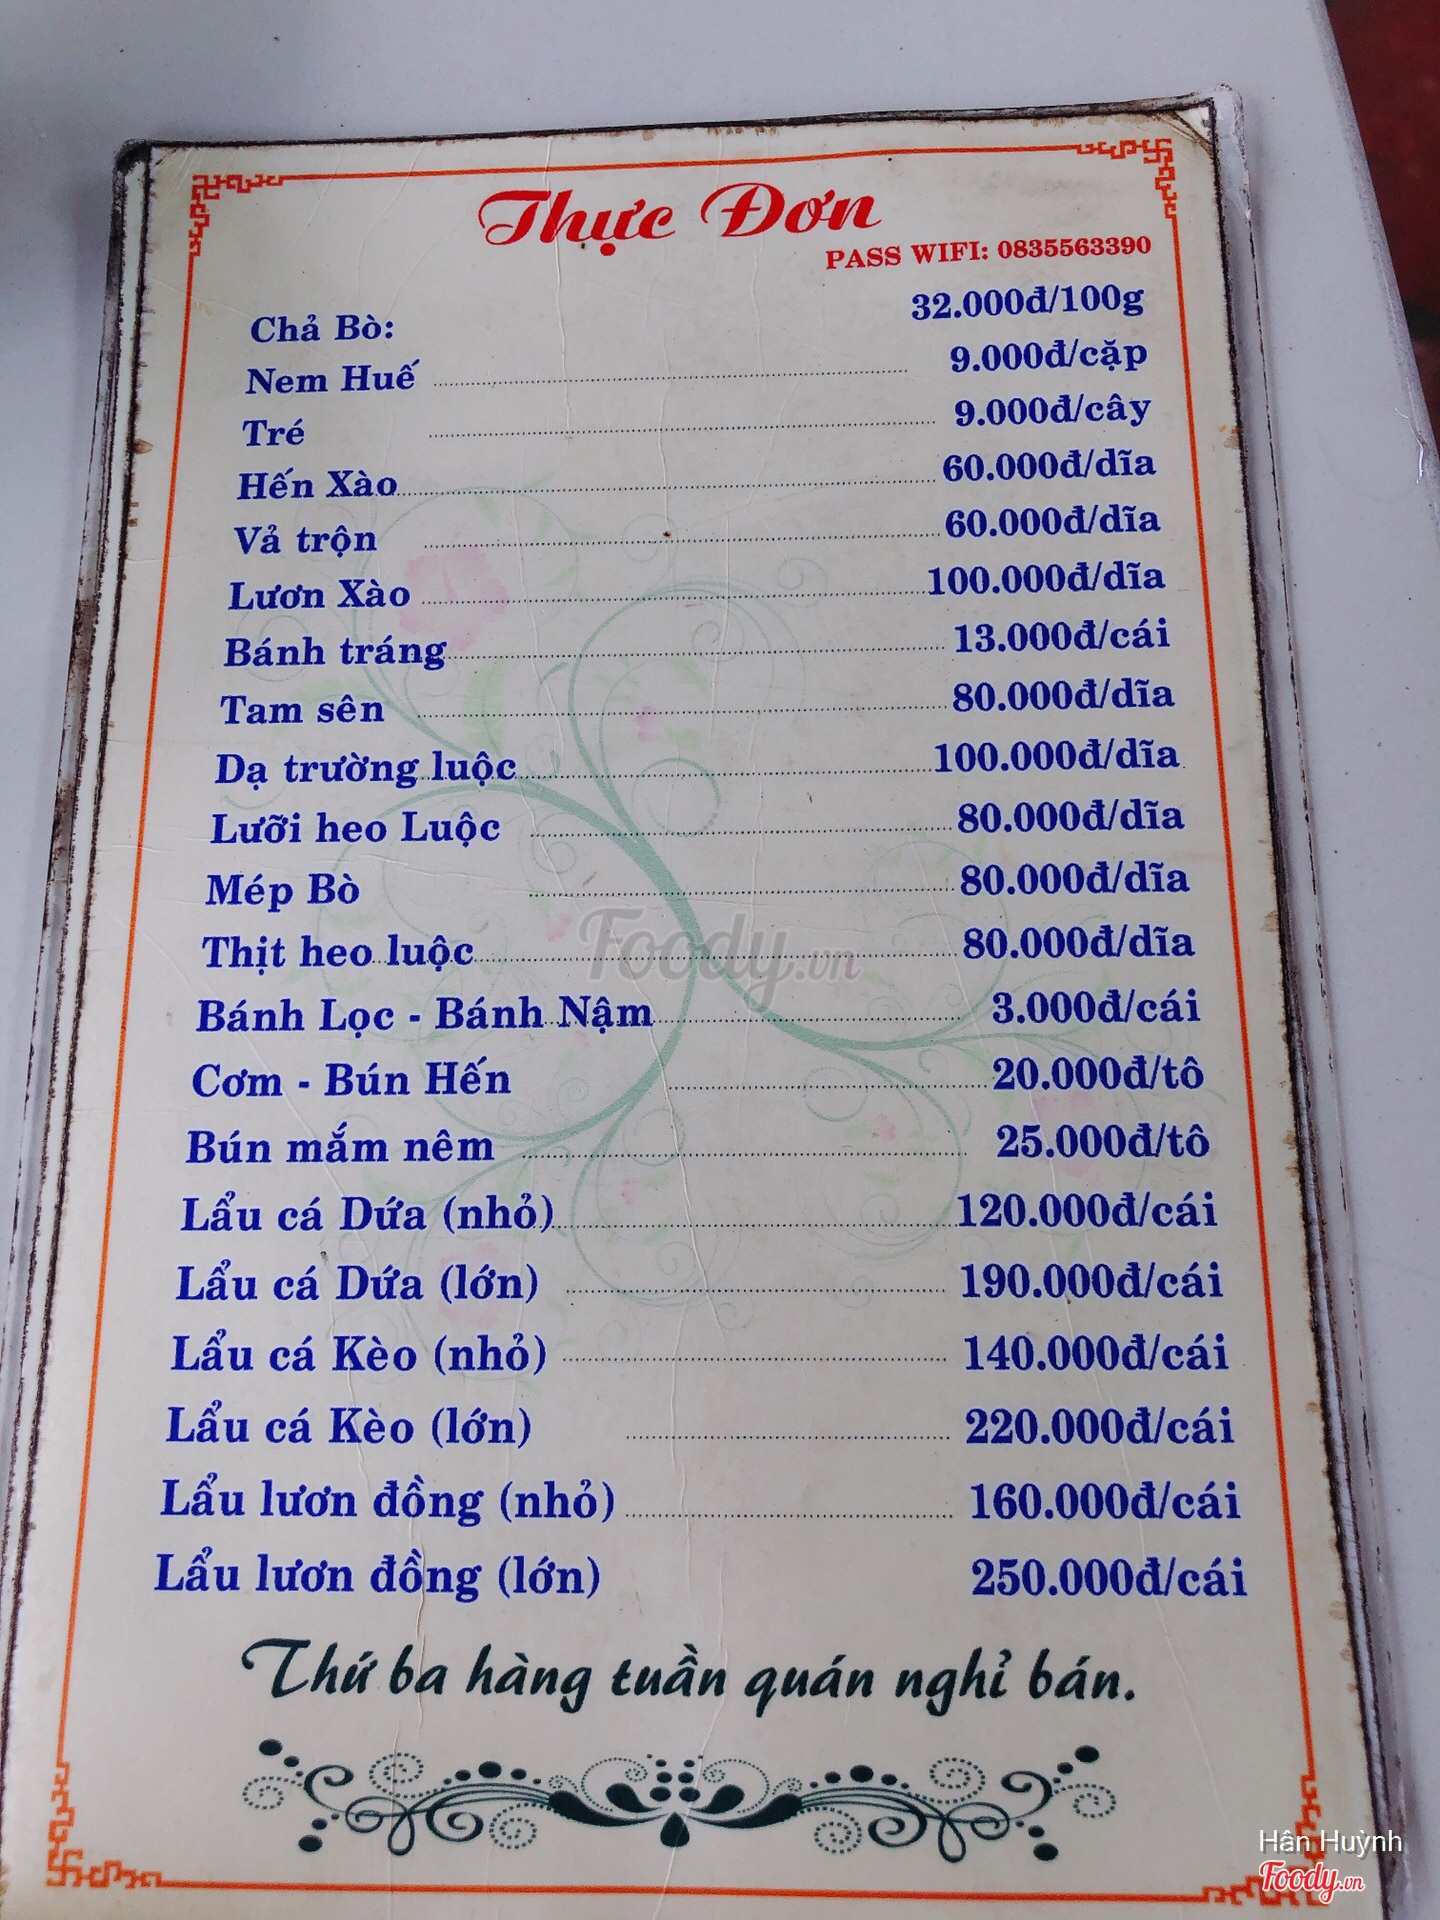 Thực Đơn
PASS WIFI: 0835563390
Chả Bò: 32.000đ/100g
Nem Huế 9.000đ/cặp
Tré 9.000đ/cây
Hến Xào 60.000đ/dĩa
Vả trộn 60.000đ/dĩa
Lươn Xào 100.000đ/dĩa
Bánh tráng 13.000đ/cái
Tam sên 80.000đ/dĩa
Dạ trường luộc 100.000đ/dĩa
Lưỡi heo Luộc 80.000đ/dĩa
Mép Bò 80.000đ/dĩa
Thịt heo luộc 80.000đ/dĩa
Foody.vn
Bánh Lọc - Bánh Nậm 3.000đ/cái
Cơm - Bún Hến 20.000đ/tô
Bún mắm nêm 25.000đ/tô
Lẩu cá Dứa (nhỏ) 120.000đ/cái
Lẩu cá Dứa (lớn) 190.000đ/cái
Lẩu cá Kèo (nhỏ) 140.000đ/cái
Lẩu cá Kèo (lớn) 220.000đ/cái
Lẩu lươn đồng (nhỏ) 160.000đ/cái
Lẩu lươn đồng (lớn) 250.000đ/cái
Thứ ba hàng tuần quán nghỉ bán.
Hân Huỳnh
Foody.vn